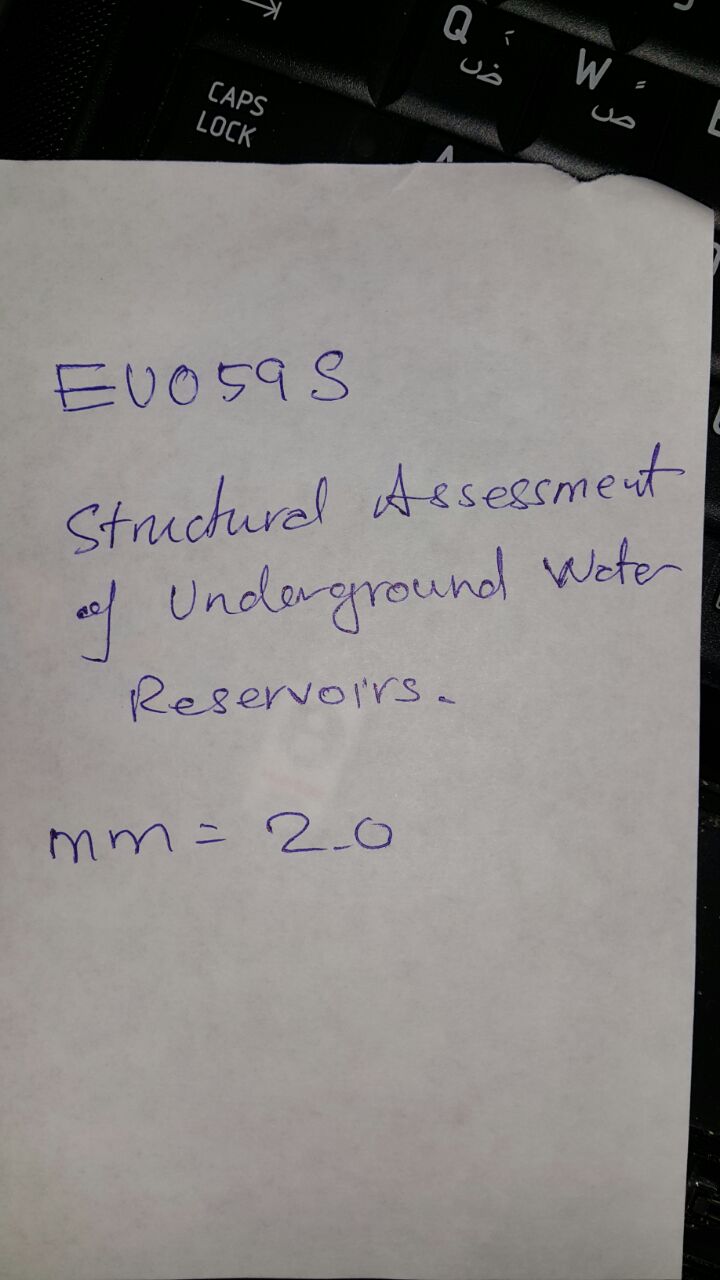 Q ً
ض
W ٌ
ص
CAPS
LOCK
A
EU059S
Structural Assessment
of Underground Water
Reservoirs.
mm = 2.0